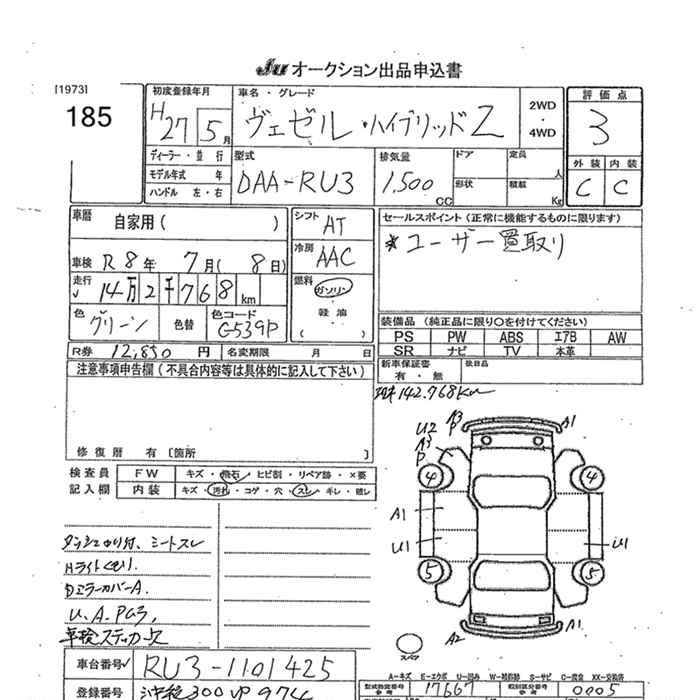 Ju オークション出品申込書
[1973]
185
初度登録年月
H27 5月
車名・グレード
ヴェゼル・ハイブリッド Z
2WD
・
4WD
評価点
3
ディーラー・並行
モデル年式 年
ハンドル 左・右
型式
DAA-RU3
排気量
1,500 CC
ドア
形状
定員 人
積載 Kg
外装 内装
C C
車歴
自家用( )
シフト AT
セールスポイント(正常に機能するものに限ります)
*ユーザー買取り
冷房 AAC
車検 R8年 7月(8日)
走行 14万2千768km
燃料
ガソリン
・
軽油
( )
色 グリーン
色替
色コード G539P
装備品(純正品に限り○を付けてください)
PS PW ABS エアB AW
SR ナビ TV 本革
R券 12,850円
名変期限 月 日
新車保証書
有・無
後日品
注意事項申告欄(不具合内容等は具体的に記入して下さい)
142.768Km
修復歴 有〔箇所 〕
検査員
記入欄
FW キズ・飛石・ヒビ割・リペア跡・×要
内装 キズ・汚れ・コゲ・穴・スレ・ギレ・壊レ
A3
P
U2
A3
P
A1
4 4
A1
U1
U1
5 5
A2
A1
スペア
シートスレ
Hライトくもり
DミラーカバーA.
U.A.PG3,
車検ステッカーX
車台番号 RU3-1101425
A-キズ E-エクボ U-凹み W-補修跡 S-サビ C-腐食 XX-交換済
登録番号
型式指定番号 17667
類別区分番号 0005